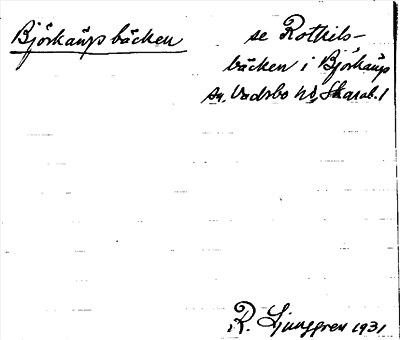 Björkängsbäcken
se Rothils-
bäcken i Björkängs
sn, Vadsbo hd, Skarab. l
R. Ljunggren 1931